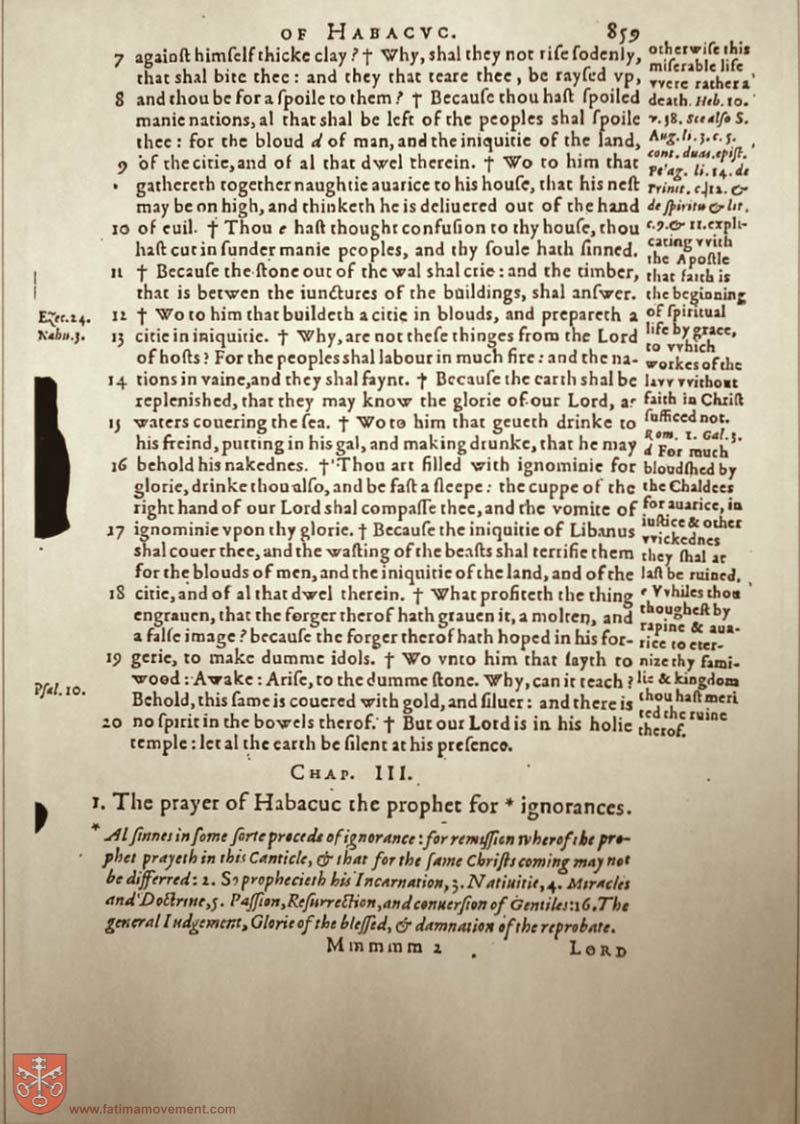 OF HABACVC. 859
7 againſt himſelf thicke clay? † Why, shal they not riſe ſodenly,
that shal bite thee: and they that teare thee, be rayſed vp,
8 and thou be for a ſpoile to them? † Becauſe thou haſt ſpoiled
manie nations, al that shal be left of the peoples shal ſpoile
thee: for the bloud d of man, and the iniquitie of the land,
9 of the citie, and of al that dwel therein. † Wo to him that
gathereth together naughtie auarice to his houſe, that his neſt
may be on high, and thinketh he is deliuered out of the hand
10 of euil. † Thou e haſt thought confuſion to thy houſe, thou
haſt cut in ſunder manie peoples, and thy ſoule hath ſinned.
11 † Becauſe the ſtone out of the wal shal crie: and the timber,
that is betwen the iunctures of the buildings, shal anſwer.
12 † Wo to him that buildeth a citie in blouds, and prepareth a
13 citie in iniquitie. † Why, are not theſe thinges from the Lord
of hoſts? For the peoples shal labour in much fire: and the na-
14 tions in vaine, and they shal faynt. † Becauſe the earth shal be
replenished, that they may know the glorie of our Lord, as
15 waters couering the ſea. † Wo to him that geueth drinke to
his freind, putting in his gal, and making drunke, that he may
16 behold his nakednes. † Thou art filled with ignominie for
glorie, drinke thou alſo, and be faſt a ſleepe: the cuppe of the
right hand of our Lord shal compaſſe thee, and the vomite of
17 ignominie vpon thy glorie. † Becauſe the iniquitie of Libanus
shal couer thee, and the waſting of the beaſts shal terrifie them
for the blouds of men, and the iniquitie of the land, and of the
18 citie, and of al that dwel therein. † What profiteth the thing
engrauen, that the forger therof hath grauen it, a molten, and
a falſe image? becauſe the forger therof hath hoped in his for-
19 gerie, to make dumme idols. † Wo vnto him that ſayth to
wood: Awake: Ariſe, to the dumme ſtone. Why, can it teach?
Behold, this ſame is couered with gold, and ſiluer: and there is
20 no ſpirit in the bowels therof. † But our Lord is in his holie
temple: let al the earth be ſilent at his preſence.
Ezec. 24.
Nahu. 3.
Pſal. 10.
otherwiſe this
miſerable life
vvere rather a
death. Heb. 10.
v. 38. See alſo S.
Aug. li. 3. c. 5.
cont. duas. epiſt.
Pelag. li. 14. de
Trinit. c. 12. &
de ſpiritu & lit.
c. 9. & 11. expli-
cating vvith
the Apoſtle
that faith is
the beginning
of ſpiritual
life by grace,
to vvhich
workes of the
lavv vvithout
faith in Chriſt
ſufficed not.
Rom. 1. Gal. 3.
d For much
bloudſhed by
the Chaldees
for auarice, in
iuſtice & other
vvickednes
they ſhal at
laſt be ruined.
e VVhiles thou
thougheſt by
rapine & aua-
rice to eter-
nize thy fami-
lie & kingdom
thou haſt meri
ted the ruine
therof.
CHAP. III.
1. The prayer of Habacuc the prophet for * ignorances.
* Al ſinnes in ſome ſorte procede of ignorance: for remiſſion wherof the pro-
phet prayeth in this Canticle, & that for the ſame Chriſts coming may not
be differred: 2. So prophecieth his Incarnation, 3. Natiuitie, 4. Miracles
and Doctrine, 5. Paſſion, Reſurrection, and conuerſion of Gentiles: 16. The
general Iudgement, Glorie of the bleſſed, & damnation of the reprobate.
Mmmmm 2 LORD
www.fatimamovement.com